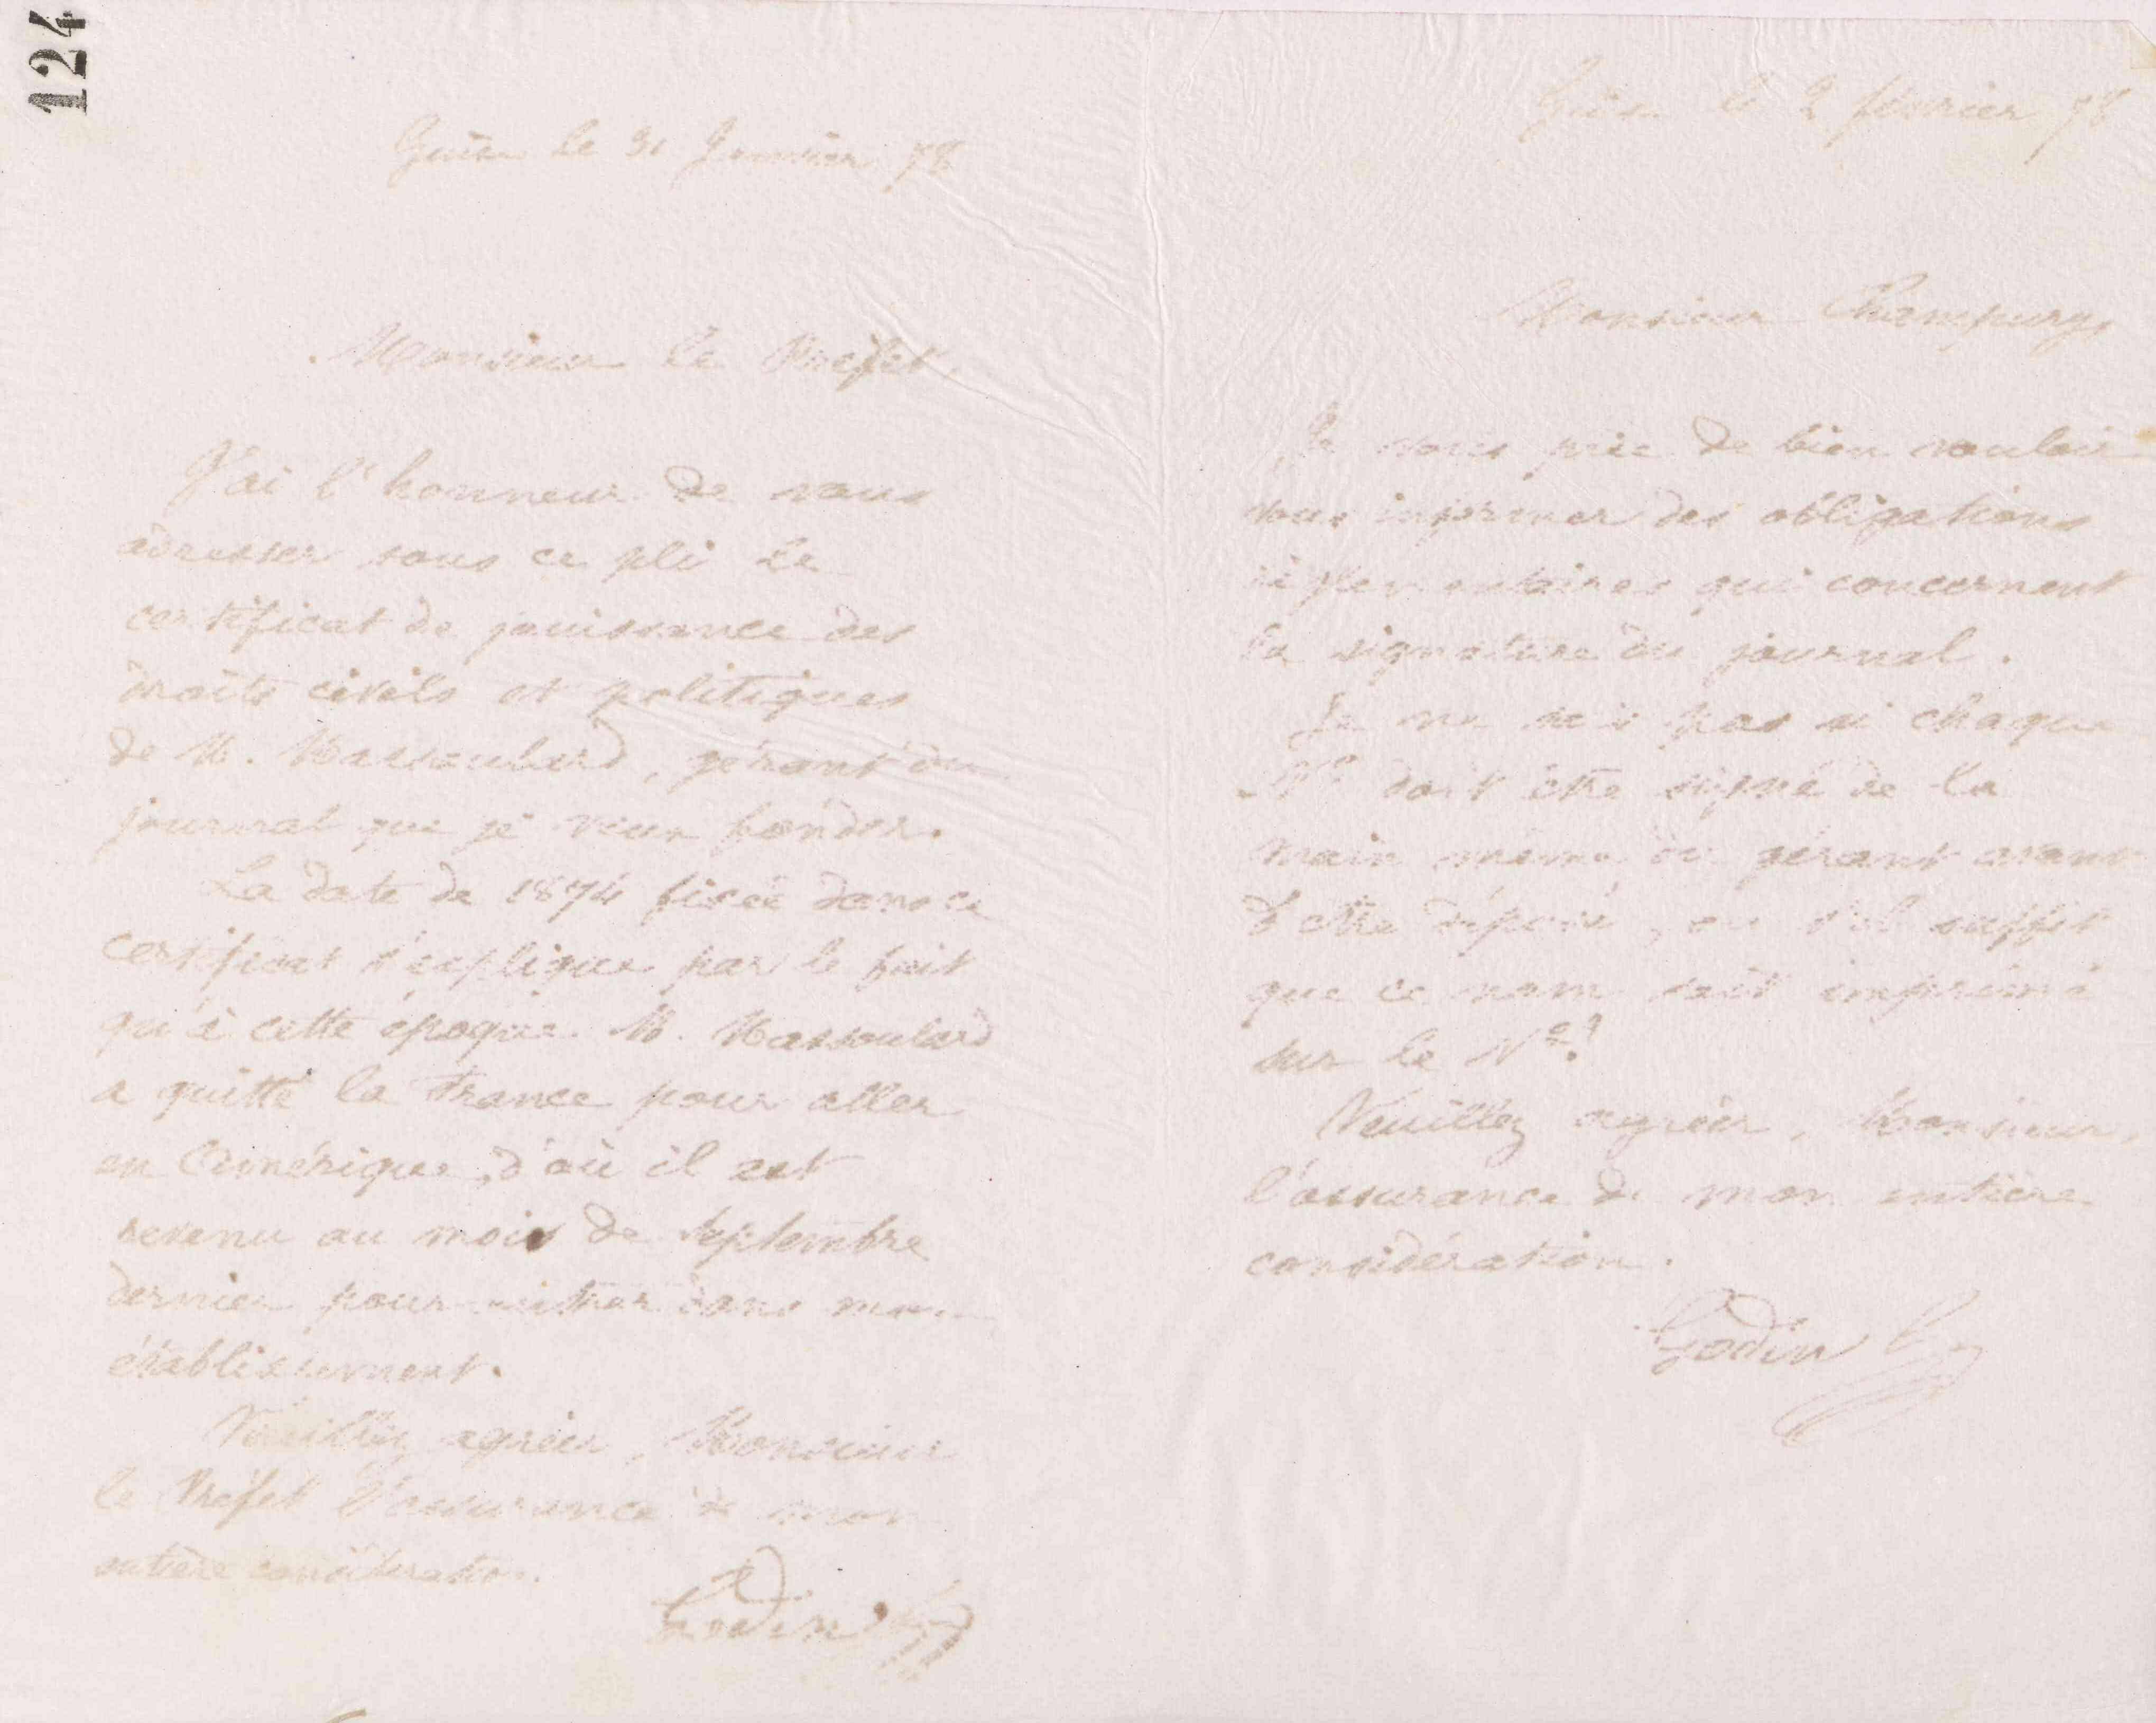 124
Guise le 31 Janvier 78
Monsieur le Préfet,
J'ai l'honneur de vous
adresser sous ce pli le
certificat de jouissance des
droits civils et politiques
de M. Massoulard, gérant du
journal que je veux fonder.
La date de 1874 fixée dans ce
certificat s'explique par le fait
qu'à cette époque M. Massoulard
a quitté la France pour aller
en Amérique, d'où il est
revenu au mois de Septembre
dernier pour entrer dans mon
établissement.
Veuillez agréer, Monsieur
le Préfet l'assurance de mon
entière considération.
Godin
Guise le 2 février 78
Monsieur Champury,
Je vous prie de bien vouloir
vous informer des obligations
règlementaires qui concernent
la signature du journal.
Je ne sais pas si chaque
N° doit être signé de la
main même du gérant avant
d'être déposé, ou s'il suffit
que ce nom soit imprimé
sur le N°?
Veuillez agréer, Monsieur,
l'assurance de mon entière
considération.
Godin